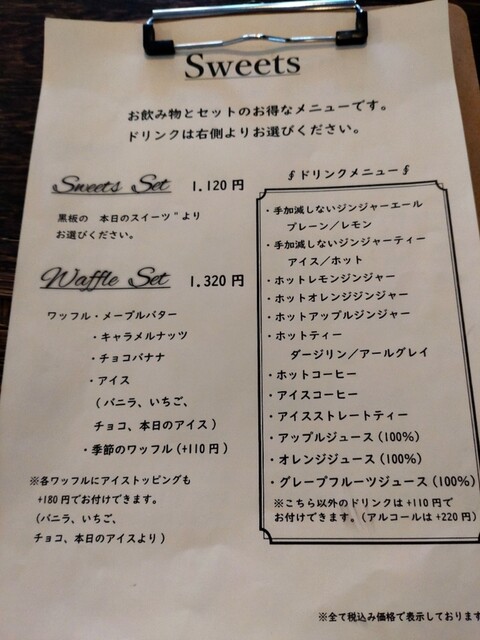 Sweets
お飲み物とセットのお得なメニューです。
ドリンクは右側よりお選びください。
Sweets Set 1.120 円
黒板の 本日のスイーツ"より
お選びください。
Waffle Set 1.320 円
ワッフル・メープルバター
・キャラメルナッツ
・チョコバナナ
・アイス
(バニラ、いちご、
チョコ、本日のアイス)
・季節のワッフル(+110円)
※各ワッフルにアイストッピングも
+180円でお付けできます。
(バニラ、いちご、
チョコ、本日のアイスより)
∮ドリンクメニュー∮
・手加減しないジンジャーエール
プレーン/レモン
・手加減しないジンジャーティー
アイス/ホット
・ホットレモンジンジャー
・ホットオレンジジンジャー
・ホットアップルジンジャー
・ホットティー
ダージリン/アールグレイ
・ホットコーヒー
・アイスコーヒー
・アイスストレートティー
・アップルジュース(100%)
・オレンジジュース(100%)
・グレープフルーツジュース(100%)
※こちら以外のドリンクは+110円で
お付けできます。(アルコールは+220円)
※全て税込み価格で表示しております